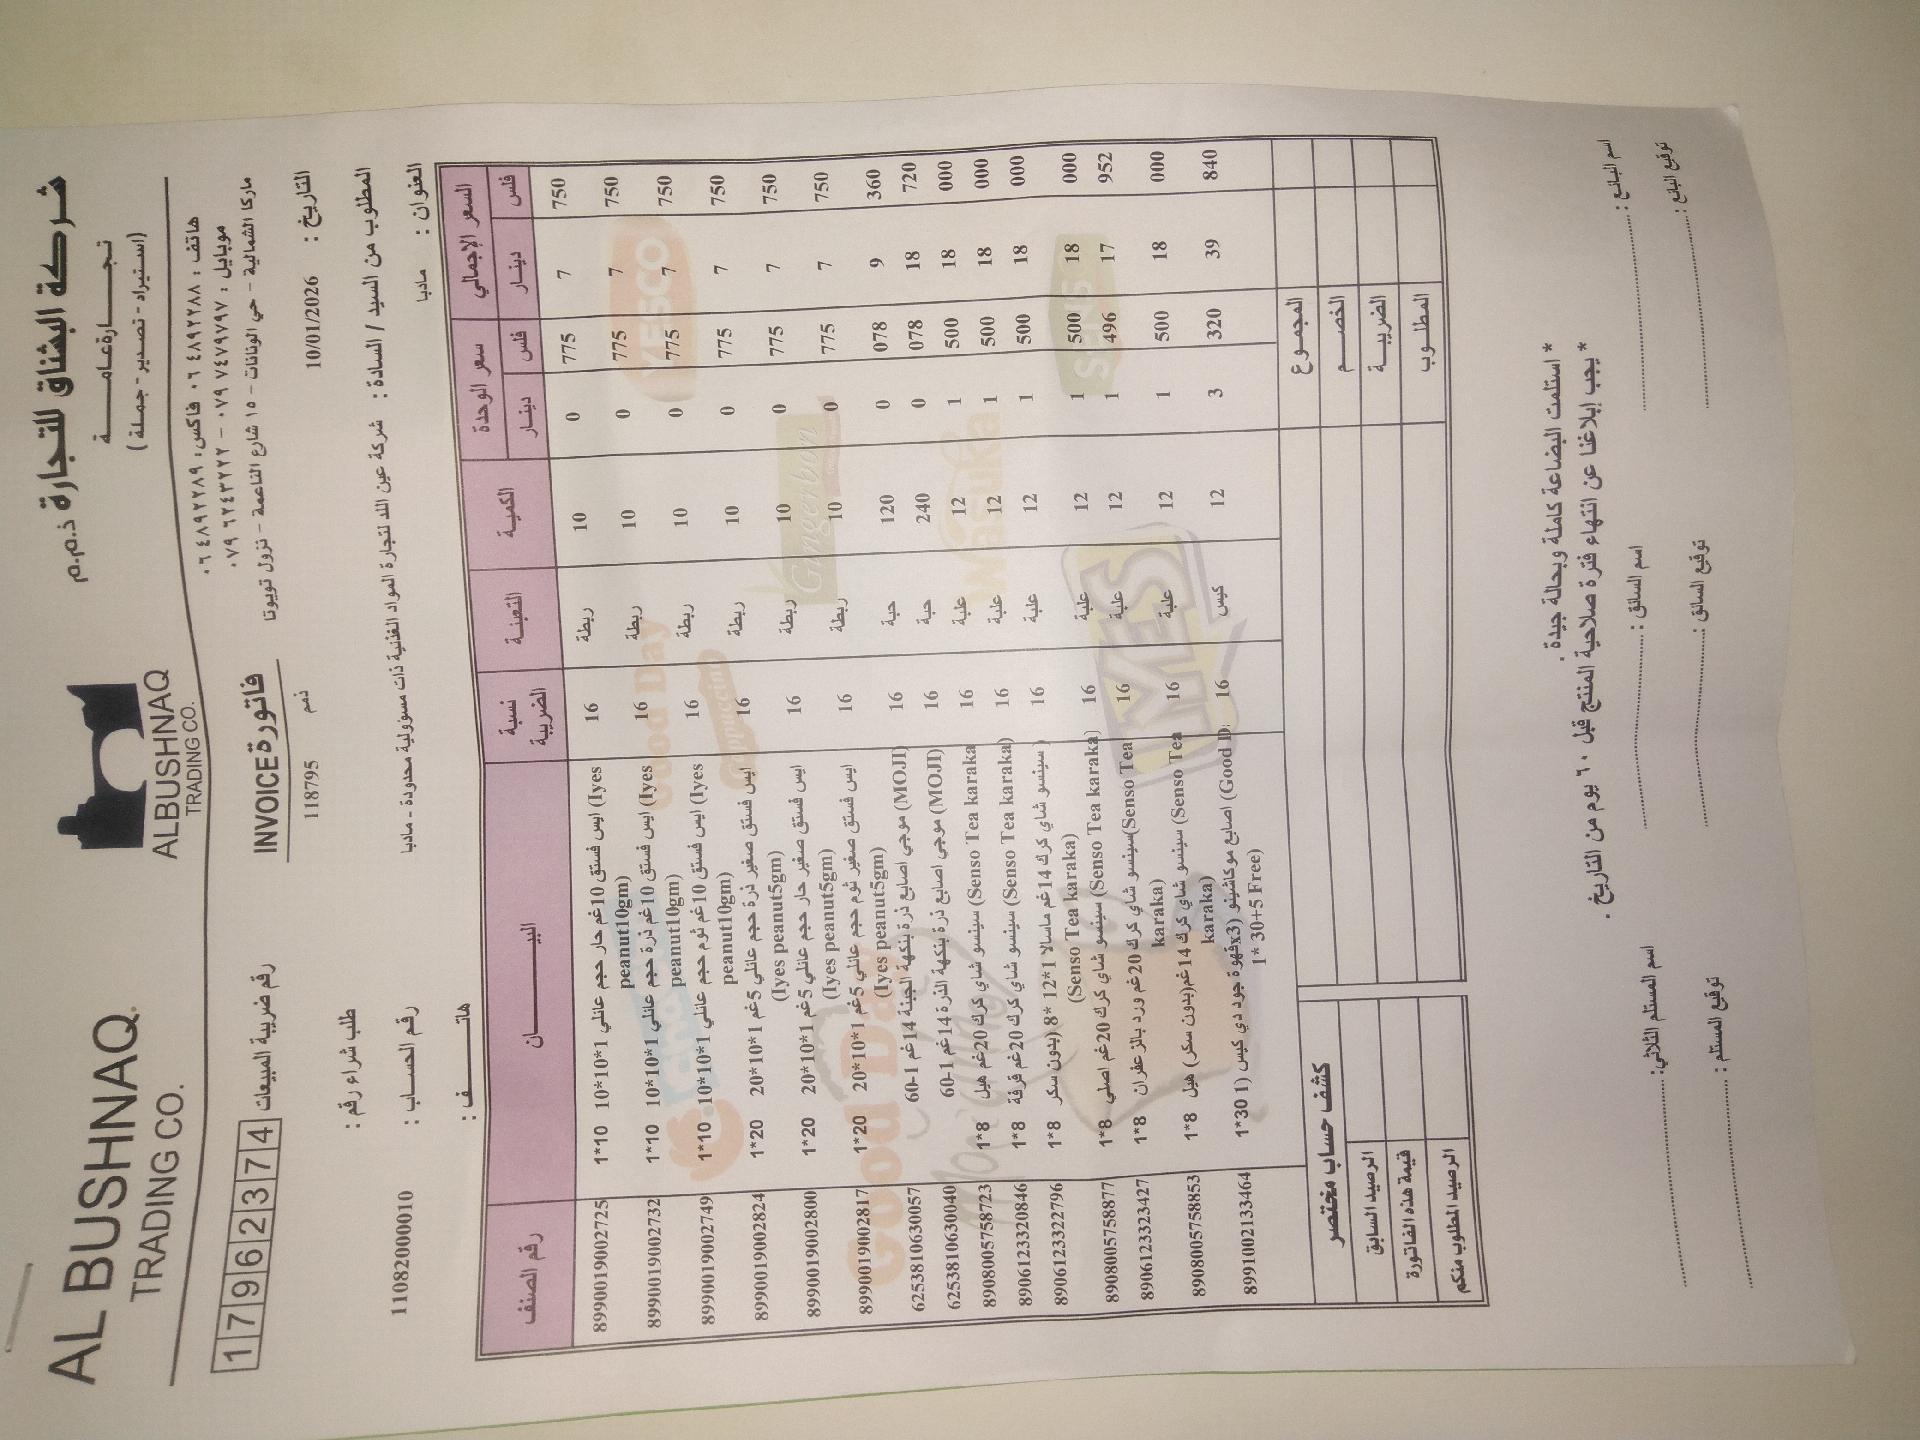 AL BUSHNAQ.
TRADING CO.
ALBUSHNAQ
TRADING CO.
شركة البشناق للتجارة ذ.م.م
تجارة عامة
(استيراد - تصدير - جملة)
هاتف : ٠٦ ٤٨٩٢٢٨٨ فاكس: ٠٦ ٤٨٩٢٢٨٩
موبايل : ٠٧٩ ٧٤٧٩٧٩٧ - ٠٧٩ ٦٢٤٣٢٢٢
ماركا الشمالية - حي الونانات - ١٥ شارع الناعمة - نزول تويوتا
17962374 رقم ضريبة المبيعات
فاتورة INVOICE
118795 ذمم
التاريخ : 10/01/2026
طلب شراء رقم :
المطلوب من السيد / السادة : شركة عين اللد لتجارة المواد الغذئية ذات مسؤولية محدودة - مادبا
رقم الحساب : 11082000010
العنوان : مادبا
هاتف :
رقم الصنف البيان نسبة الضريبة التعبئة الكمية سعر الوحدة السعر الإجمالي
دينار فلس دينار فلس
8990019002725 1*10 ايس فستق 10غم حار حجم عائلي 1*10*10 (Iyes peanut10gm) 16 ربطة 10 0 775 7 750
8990019002732 1*10 ايس فستق 10غم ذرة حجم عائلي 1*10*10 (Iyes peanut10gm) 16 ربطة 10 0 775 7 750
8990019002749 1*10 ايس فستق 10غم ثوم حجم عائلي 1*10*10 (Iyes peanut10gm) 16 ربطة 10 0 775 7 750
8990019002824 1*20 ايس فستق صغير ذرة حجم عائلي 5غم 1*10*20 (Iyes peanut5gm) 16 ربطة 10 0 775 7 750
8990019002800 1*20 ايس فستق صغير حار حجم عائلي 5غم 1*10*20 (Iyes peanut5gm) 16 ربطة 10 0 775 7 750
8990019002817 1*20 ايس فستق صغير ثوم حجم عائلي 5غم 1*10*20 (Iyes peanut5gm) 16 ربطة 10 0 775 7 750
6253810630057 موجي اصابع ذرة بنكهة الجبنة 14غم 1-60 (MOJI) 16 حبة 120 0 078 9 360
6253810630040 موجي اصابع ذرة بنكهة الذرة 14غم 1-60 (MOJI) 16 حبة 240 0 078 18 720
8908005758723 1*8 سينسو شاي كرك 20غم هيل (Senso Tea karaka 16 علبة 12 1 500 18 000
8906123320846 1*8 سينسو شاي كرك 20غم قرفة (Senso Tea karaka) 16 علبة 12 1 500 18 000
8906123322796 1*8 سينسو شاي كرك 14غم ماسالا 1*12 *8 (بدون سكر (Senso Tea karaka) 16 علبة 12 1 500 18 000
8908005758877 1*8 سينسو شاي كرك 20غم اصلي (Senso Tea karaka) 16 علبة 12 1 500 18 000
8906123323427 1*8 سينسو شاي كرك 20غم ورد بالزعفران (Senso Tea karaka) 16 علبة 12 1 496 17 952
8908005758853 1*8 سينسو شاي كرك 14غم(بدون سكر) هيل (Senso Tea karaka) 16 علبة 12 1 500 18 000
8991002133464 1*30 اصابع موكاشينو (x3قهوة جود دي كيس (1 (Good D 1* 30+5 Free) 16 كيس 12 3 320 39 840
المجموع
الخصم
الضريبة
المطلوب
كشف حساب مختصر
الرصيد السابق
قيمة هذه الفاتورة
الرصيد المطلوب منكم
* استلمت البضاعة كاملة وبحالة جيدة .
* يجب إبلاغنا عن انتهاء فترة صلاحية المنتج قبل ٦٠ يوم من التاريخ .
اسم البائع : اسم السائق : اسم المستلم الثلاثي:
توقيع البائع : توقيع السائق : توقيع المستلم :
YESCO
SENSO
Gingerbon
Wasuka
IYES
Good Day
Cappuccino
Good Day